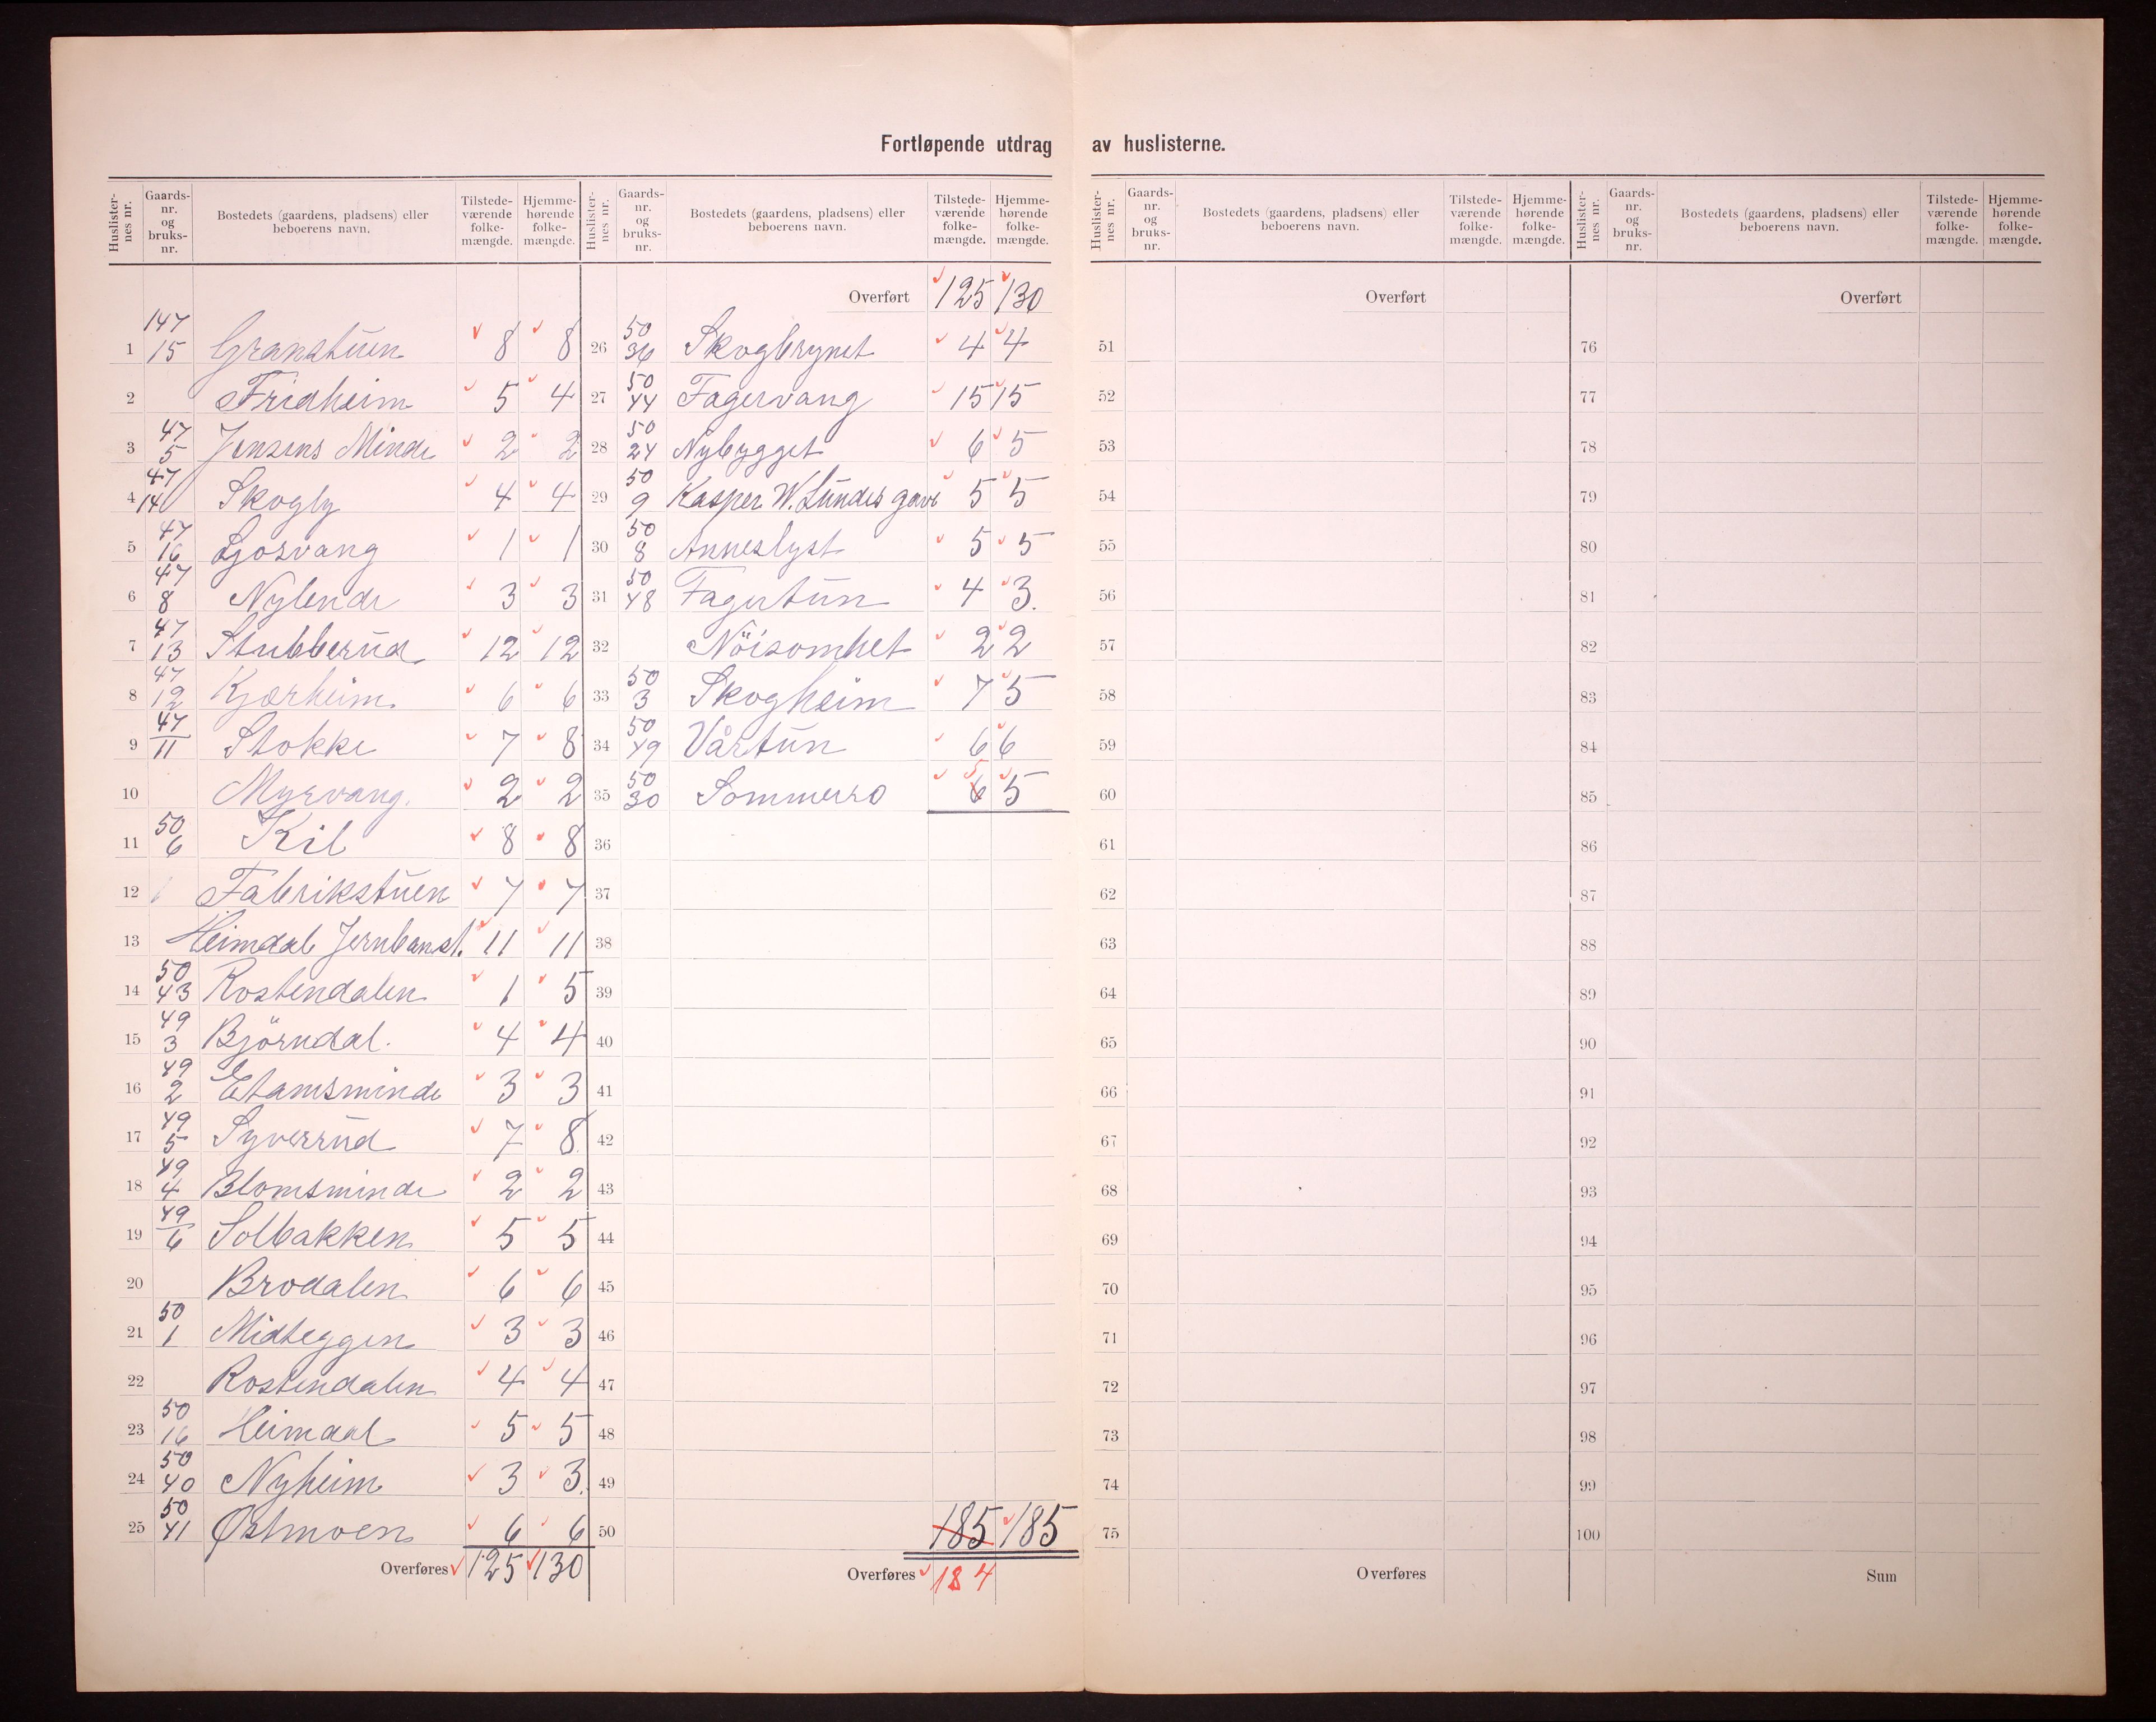 Fortløpende utdrag av huslisterne.
Huslister-nes nr. Gaards-nr. og bruks-nr. Bostedets (gaardens, pladsens) eller beboerens navn. Tilstede-værende folke-mængde. Hjemme-hørende folke-mængde. Huslister-nes nr. Gaards-nr. og bruks-nr. Bostedets (gaardens, pladsens) eller beboerens navn. Tilstede-værende folke-mængde. Hjemme-hørende folke-mængde.
Huslister-nes nr. Gaards-nr. og bruks-nr. Bostedets (gaardens, pladsens) eller beboerens navn. Tilstede-værende folke-mængde. Hjemme-hørende folke-mængde. Huslister-nes nr. Gaards-nr. og bruks-nr. Bostedets (gaardens, pladsens) eller beboerens navn. Tilstede-værende folke-mængde. Hjemme-hørende folke-mængde.
1 147/15 Granstuen 8 8
2 Fridheim 5 4
3 47/5 Jensens Minde 2 2
4 47/14 Skogly 4 4
5 47/16 Ljosvang 1 1
6 47/8 Nylende 3 3
7 47/13 Stubberud 12 12
8 47/12 Kjærheim 6 6
9 47/11 Stokke 7 8
10 Myrvang. 2 2
11 50/6 Kil 8 8
12 Fabrikstuen 7 7
13 Heimdal Jernbanest. 11 11
14 50/43 Rostendalen 1 5
15 49/3 Björndal. 4 4
16 49/2 Etamsminde 3 3
17 49/5 Syverrud 7 8
18 49/4 Blomsminde 2 2
19 49/6 Solbakken 5 5
20 Brodalen 6 6
21 50/1 Midteggen 3 3
22 Rostendalen 4 4
23 50/16 Heimdal 5 5
24 50/40 Nyheim 3 3
25 50/41 Østmoen 6 6
Overføres 125 130
Overført 125 130
26 50/36 Skogbrynet 4 4
27 50/44 Fagervang 15 15
28 50/24 Nybygget 6 5
29 50/9 Kasper W. Lundes gave 5 5
30 50/8 Anneslyst 5 5
31 50/48 Fagertun 4 3.
32 Nöisomhet 2 2
33 50/3 Skogheim 7 5
34 50/49 Vårtun 6 6
35 50/30 Sommerro 6 5 5
36
37
38
39
40
41
42
43
44
45
46
47
48
49
50 185 185
Overføres 184
Overført
51
52
53
54
55
56
57
58
59
60
61
62
63
64
65
66
67
68
69
70
71
72
73
74
75
Overføres
Overført
76
77
78
79
80
81
82
83
84
85
86
87
88
89
90
91
92
93
94
95
96
97
98
99
100
Sum